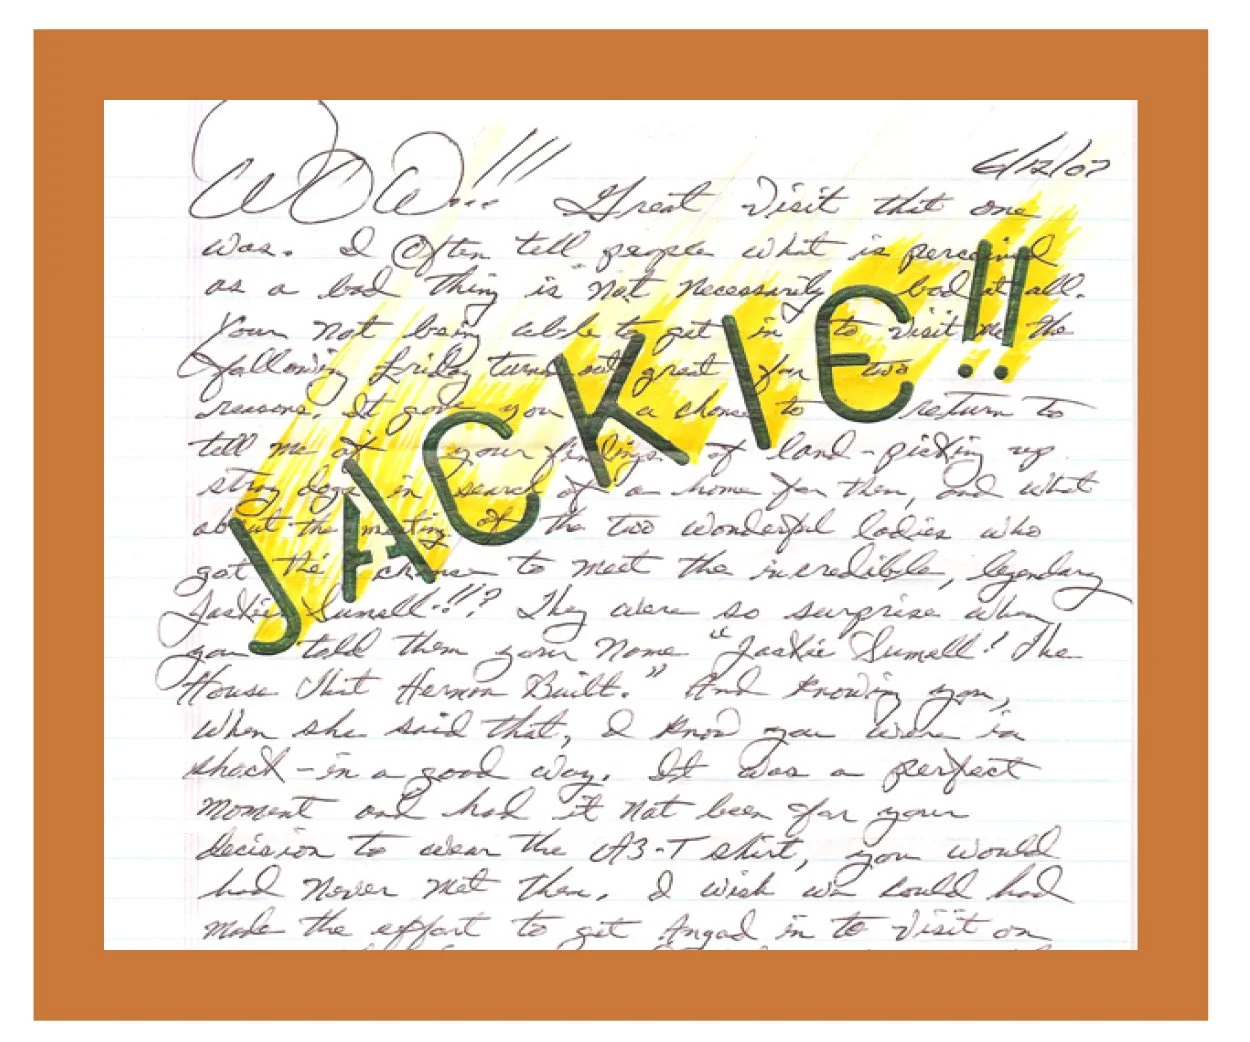 6/12/07
WOW...!!! Great Visit that one
was. I Often tell people what is perceived
as a bad thing is Not Necessarily bad at all.
Your not being able to get in to visit me the
following Friday turns out great for two
reasons. It gave you a chance to return to
tell me of your findings of land - picking up
stray dogs in search of a home for them, and what
about the meeting of the two wonderful ladies who
got the chance to meet the incredible, legendary
Jackie Sumell!!!? They were so surprise when
you told them your Name "Jackie Sumell! The
House That Herman Built." And knowing you,
when she said that, I know you were in
shock - in a good way. It was a perfect
moment and had it not been for your
decision to wear the A3-T shirt, you would
had Never met them. I wish we could had
made the effort to get Angad in to visit on
JACKIE!!